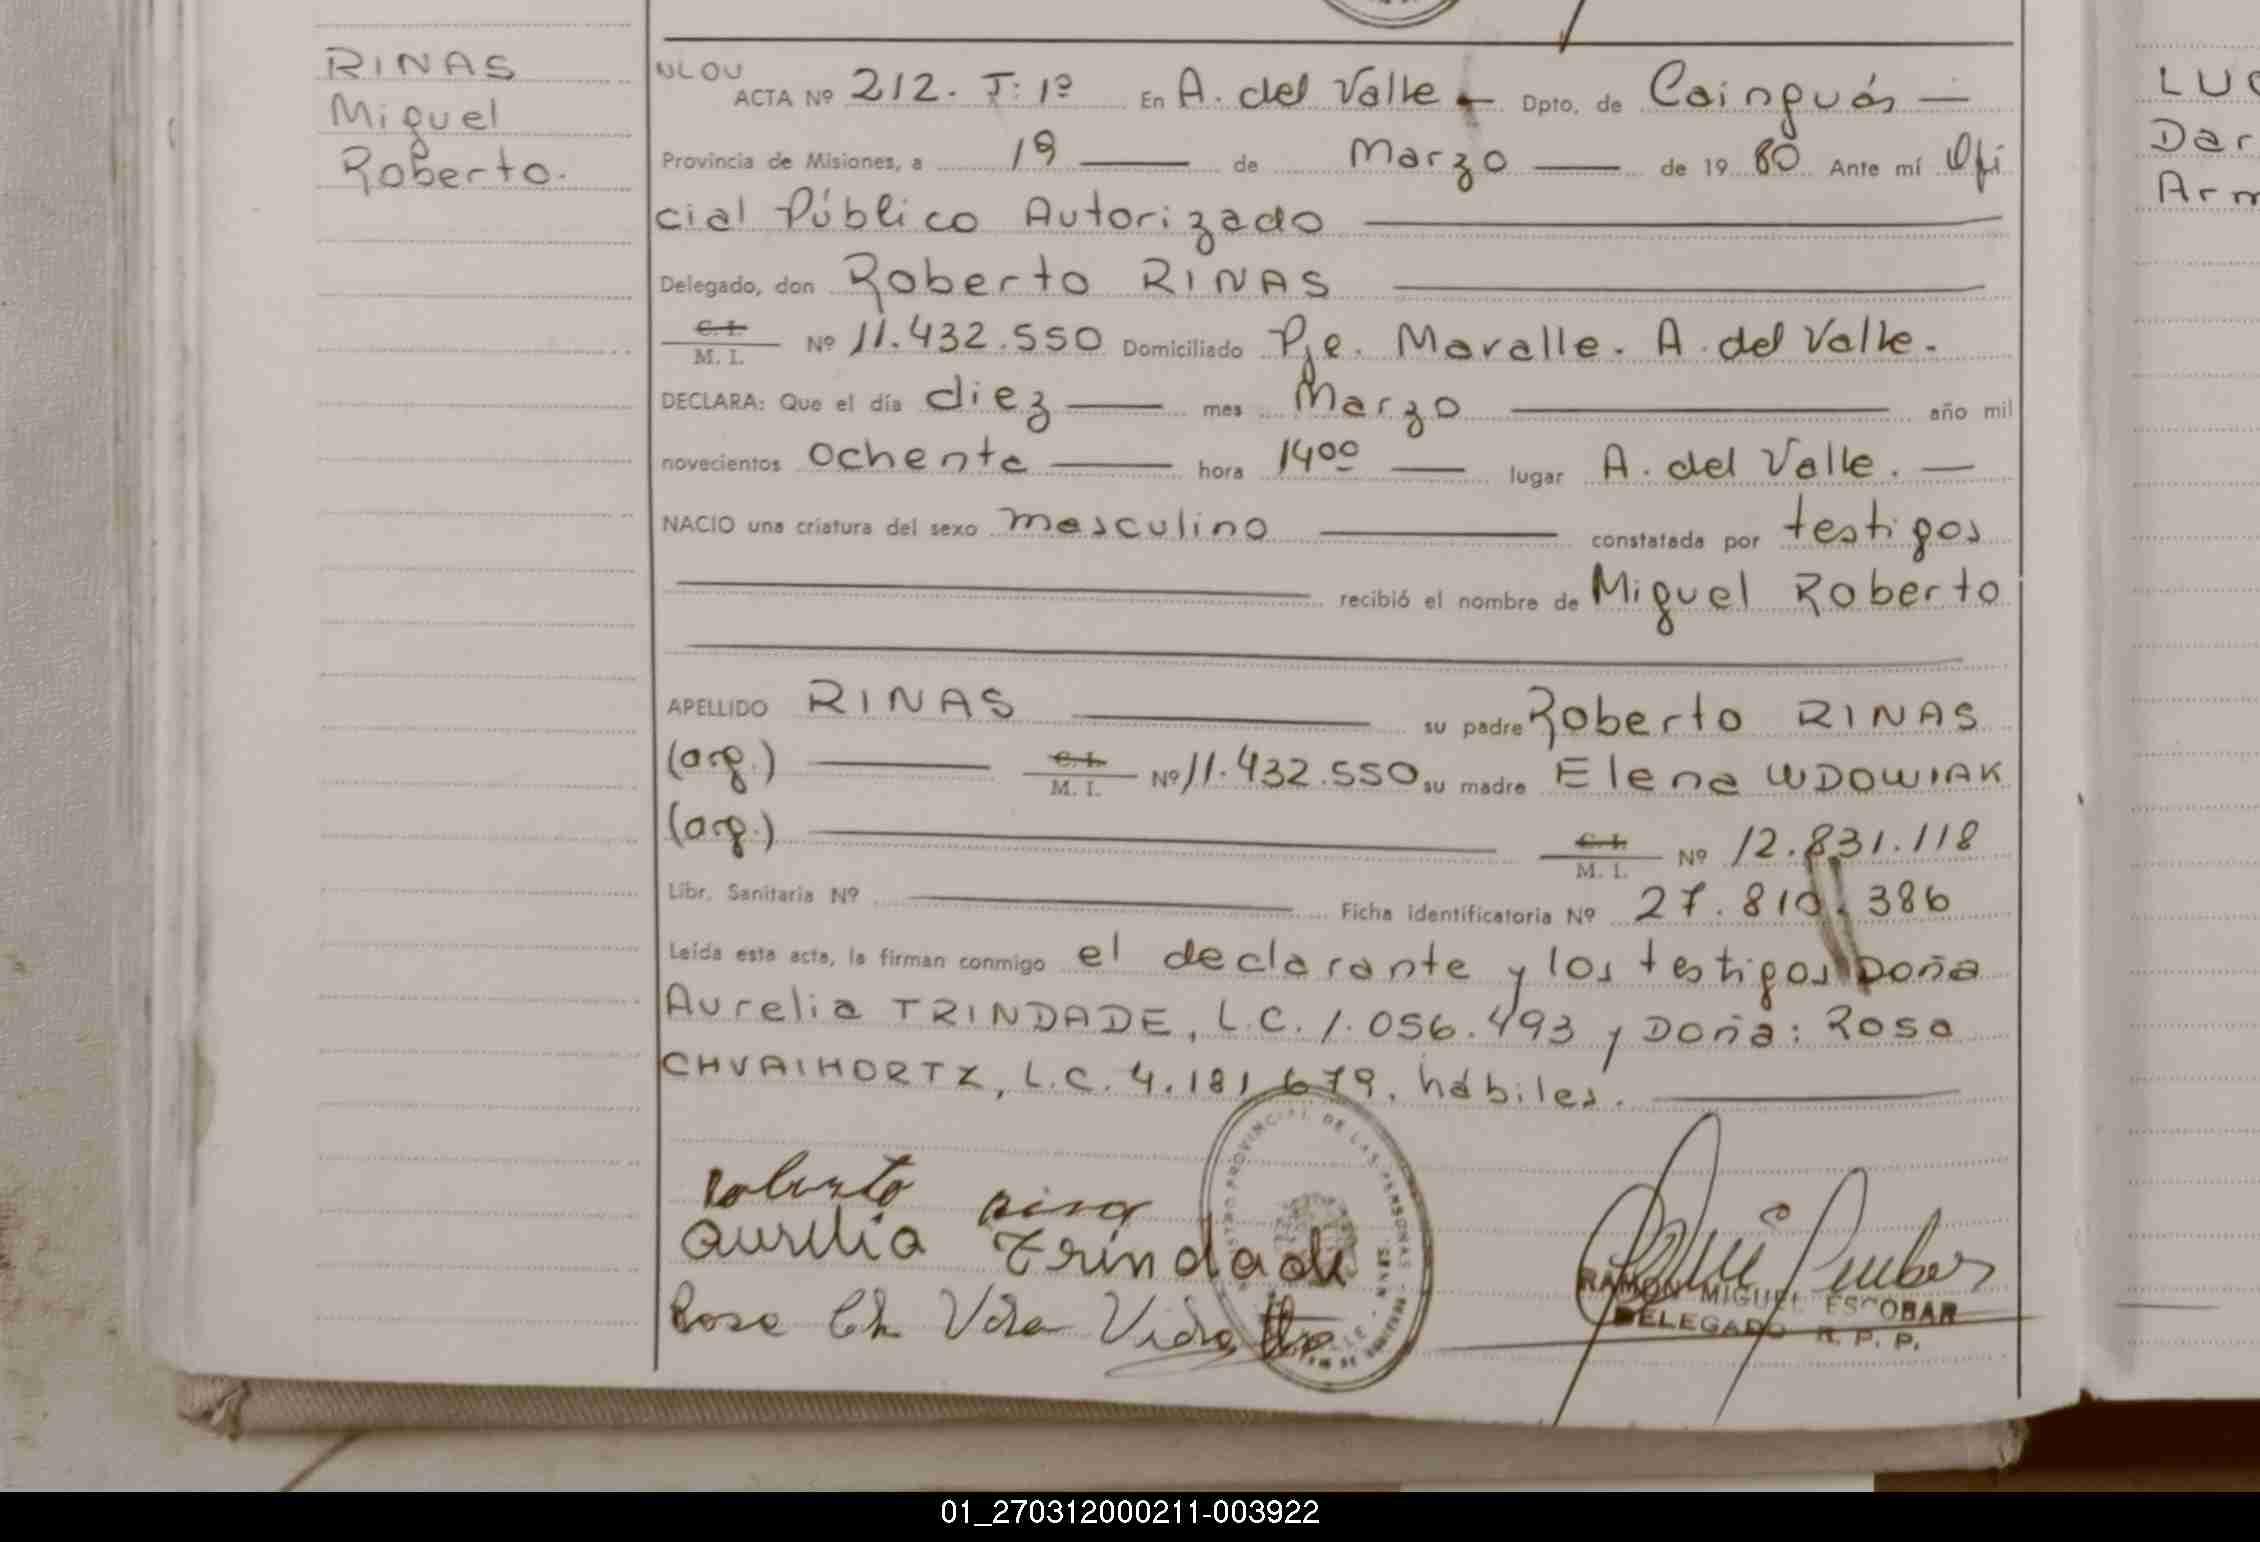 RINAS
Miguel
Roberto.
NLOU
ACTA Nº 212. T: 1º En A. del Valle - Dpto. de Cainguás —
Provincia de Misiones, a 19 — de Marzo — de 19 80 Ante mí Ofi
cial Público Autorizado —
Delegado, don Roberto RINAS —
C. I.
M. I. Nº 11.432.550 Domiciliado Pje. Maralle. A. del Valle.
DECLARA: Que el día diez — mes Marzo — año mil
novecientos ochenta — hora 14oo — lugar A. del Valle. —
NACIO una criatura del sexo masculino — constatada por testigos
— recibió el nombre de Miguel Roberto
APELLIDO RINAS — su padre Roberto RINAS
(arg.) — C. I.
M. I. Nº 11.432.550 su madre Elena WDOWIAK
(arg.) — C. I.
M. I. Nº 12.831.118
Libr. Sanitaria Nº — Ficha identificatoria Nº 27.810.386
Leída esta acta, la firman conmigo el declarante y los testigos Doña
Aurelia TRINDADE, L.C. 1.056.493 y Doña: Rosa
CHVAIHORTZ, L.C. 4.181.679. hábiles. —
Roberto Rina
Aurelia Trindade
Rosa Ch Vda
PROVINCIAL DE LAS PERSONAS
RAMON MIGUEL ESCOBAR
DELEGADO R. P. P.
LUC
Dar
Arm
01_270312000211-003922